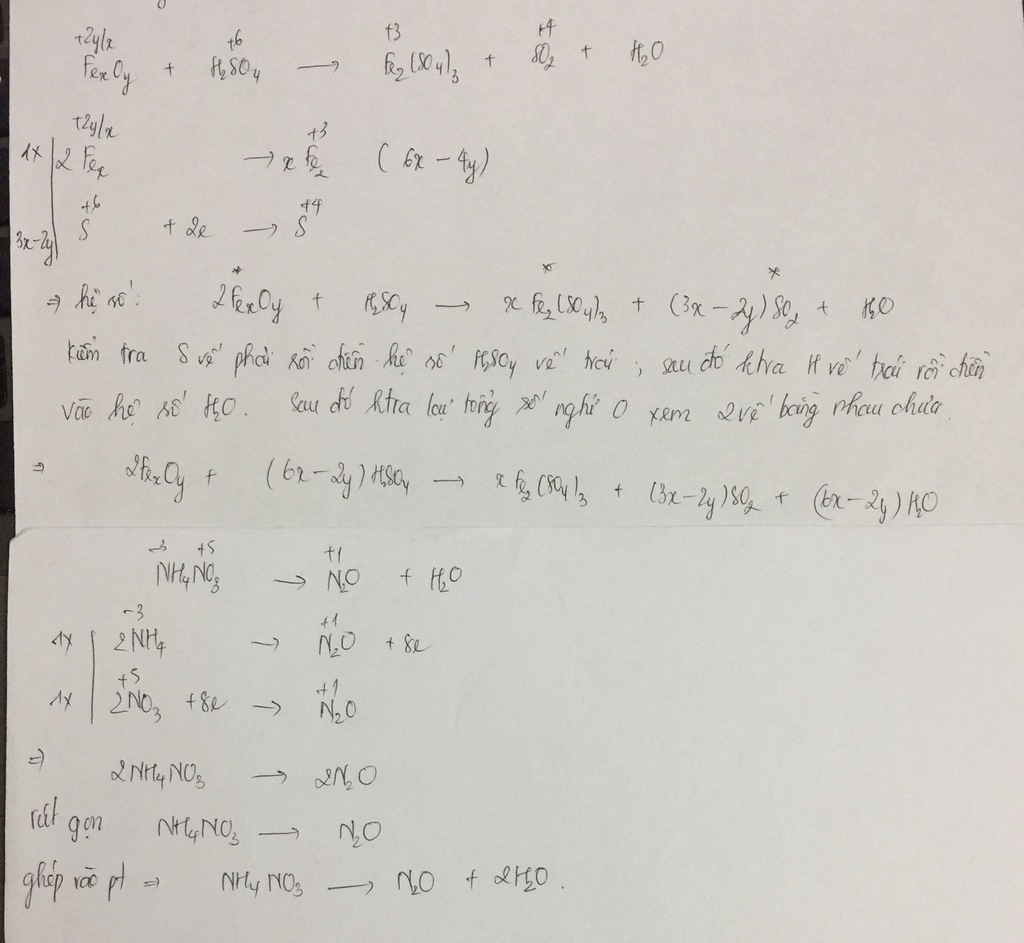 +2y/x +6 +3 +4
FexOy + H2SO4 → Fe2(SO4)3 + SO2 + H2O
+2y/x +3
1x 2Fex → x Fe2 (6x - 4y)
+6 +4
3x-2y S + 2e → S
* * *
⇒ hệ số: 2FexOy + H2SO4 → x Fe2(SO4)3 + (3x - 2y)SO2 + H2O
Kiểm tra S vế phải rồi điền hệ số H2SO4 vế trái; sau đó ktra H vế trái rồi điền
vào hệ số H2O. Sau đó ktra lại tổng số nghử O xem 2 vế bằng nhau chưa.
⇒ 2FexOy + (6x-2y)H2SO4 → x Fe2(SO4)3 + (3x-2y)SO2 + (6x-2y)H2O
-3 +5 +1
NH4NO3 → N2O + H2O
-3 +1
1x 2NH4 → N2O + 8e
+5 +1
1x 2NO3 + 8e → N2O
⇒ 2NH4NO3 → 2N2O
rút gọn NH4NO3 → N2O
ghép vào pt ⇒ NH4NO3 → N2O + 2H2O.